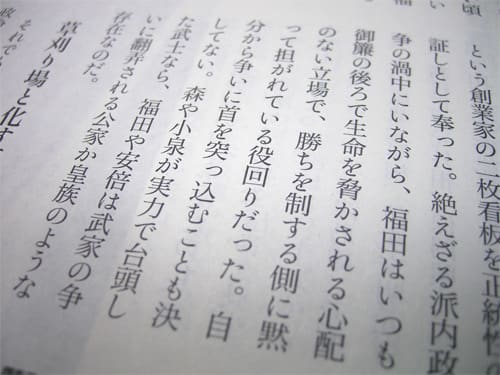 い頃
という創業家の二枚看板を正統性の
証しとして奉った。絶えざる派内政
争の渦中にいながら、福田はいつも
御簾の後ろで生命を脅かされる心配
のない立場で、勝ちを制する側に黙
って担がれている役回りだった。自
分から争いに首を突っ込むことも決
してない。森や小泉が実力で台頭し
た武士なら、福田や安倍は武家の争
いに翻弄される公家か皇族のような
存在なのだ。
草刈り場と化す